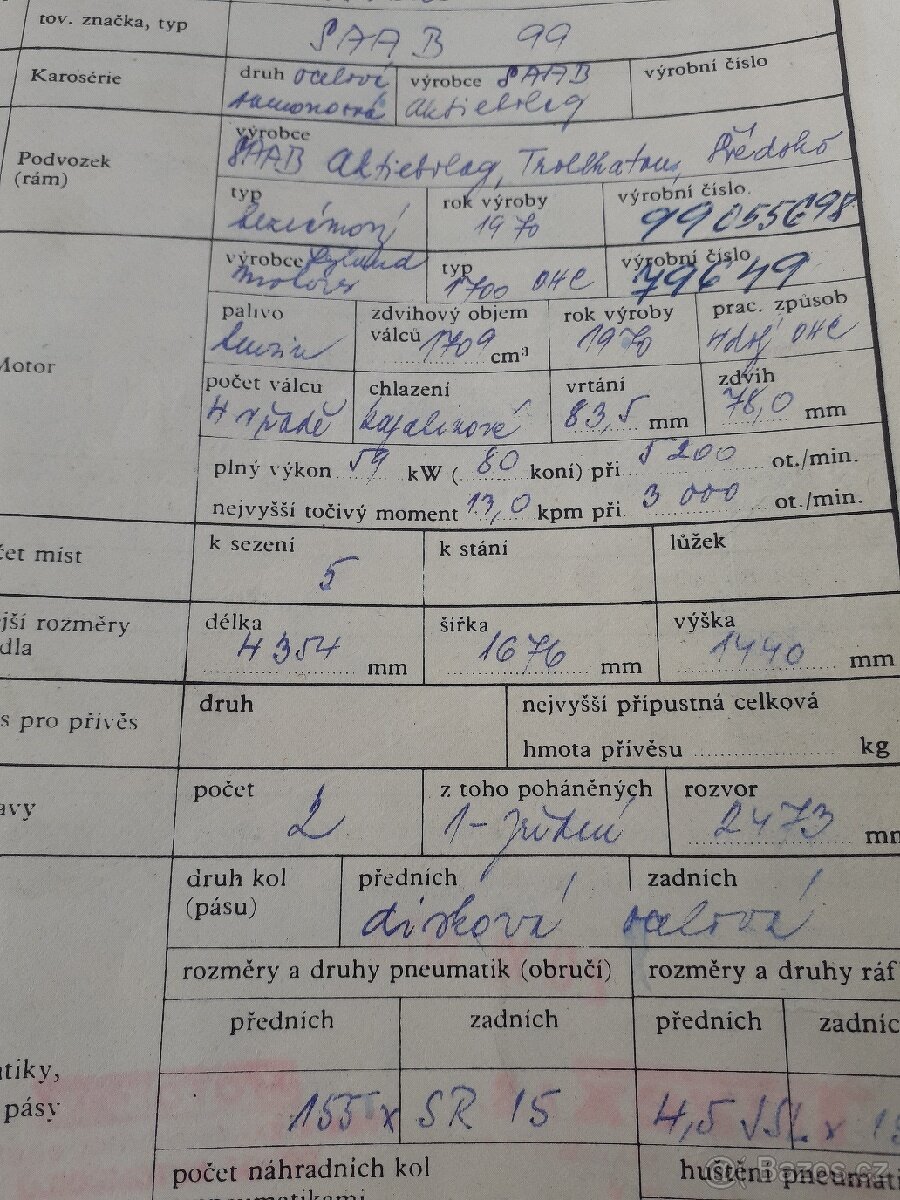 tov. značka, typ SAAB 99
Karosérie druh ocelová výrobce SAAB výrobní číslo
samonosná Aktiebolag
výrobce
Podvozek SAAB Aktiebolag, Trollhattan, Švédsko
(rám)
typ rok výroby výrobní číslo
1970 99055698
výrobce typ výrobní číslo
1700 OHC 779649
palivo zdvihový objem rok výroby prac. způsob
benzin válců 1709 cm³ 1970 4dobý OHC
Motor
počet válců chlazení vrtání zdvih
4 v řadě kapalinové 83,5 mm 78,0 mm
plný výkon 59 kW (80 koní) při 5 200 ot./min.
nejvyšší točivý moment 13,0 kpm při 3 000 ot./min.
čet míst k sezení k stání lůžek
5
jší rozměry délka šířka výška
dla 4354 mm 1676 mm 1440 mm
s pro přívěs druh nejvyšší přípustná celková
hmota přívěsu kg
avy počet z toho poháněných rozvor
2 1-přední 2473 mm
druh kol předních zadních
(pásu) disková ocelová
rozměry a druhy pneumatik (obručí) rozměry a druhy ráf
předních zadních předních zadníc
atiky,
pásy 155 x SR 15 4,5 x 15
počet náhradních kol huštění pneumati
s pneumatikami
Bazos.cz